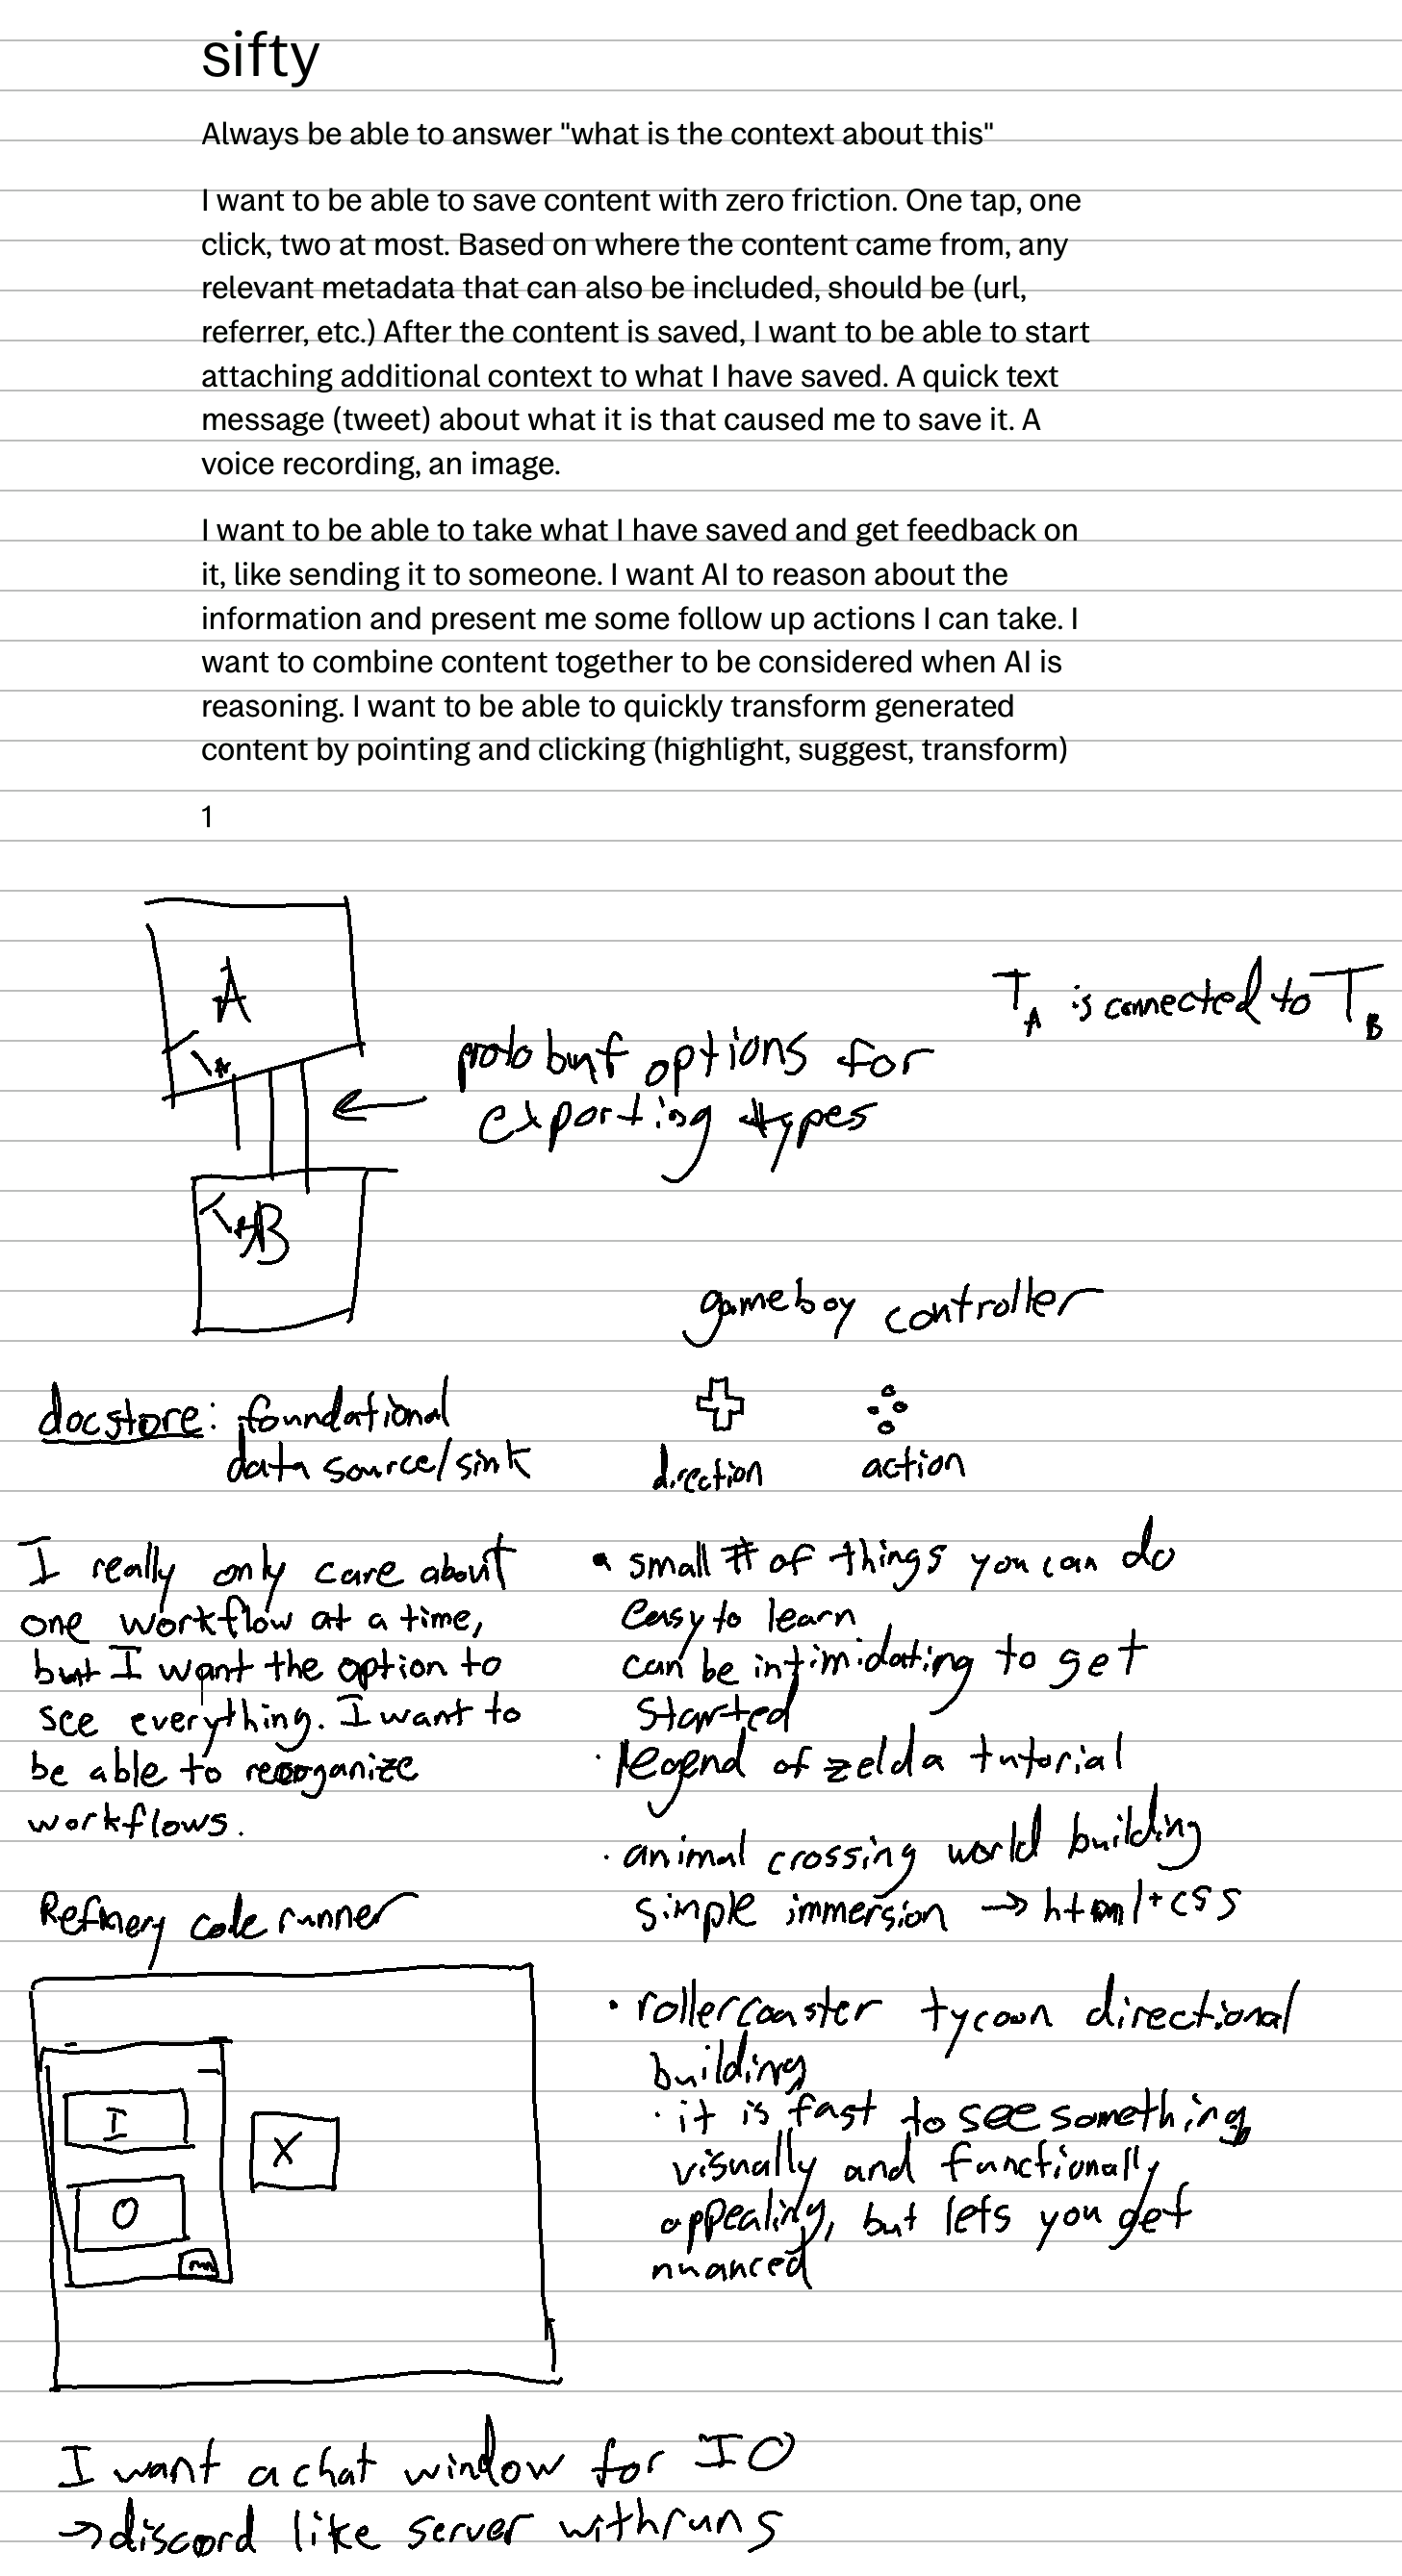 sifty
Always be able to answer "what is the context about this"
I want to be able to save content with zero friction. One tap, one
click, two at most. Based on where the content came from, any
relevant metadata that can also be included, should be (url,
referrer, etc.) After the content is saved, I want to be able to start
attaching additional context to what I have saved. A quick text
message (tweet) about what it is that caused me to save it. A
voice recording, an image.
I want to be able to take what I have saved and get feedback on
it, like sending it to someone. I want AI to reason about the
information and present me some follow up actions I can take. I
want to combine content together to be considered when AI is
reasoning. I want to be able to quickly transform generated
content by pointing and clicking (highlight, suggest, transform)
1
A
T_A is connected to T_B
protobuf options for
exporting types
B
gameboy controller
direction
action
docstore: foundational
data source/sink
I really only care about
one workflow at a time,
but I want the option to
see everything. I want to
be able to reorganize
workflows.
• small # of things you can do
easy to learn
can be intimidating to get
started
· legend of zelda tutorial
· animal crossing world building
simple immersion → html+css
· rollercoaster tycoon directional
building
· it is fast to see something
visually and functionally
appealing, but lets you get
nuanced
Refinery code runner
I
O
X
I want a chat window for IO
→ discord like server with runs